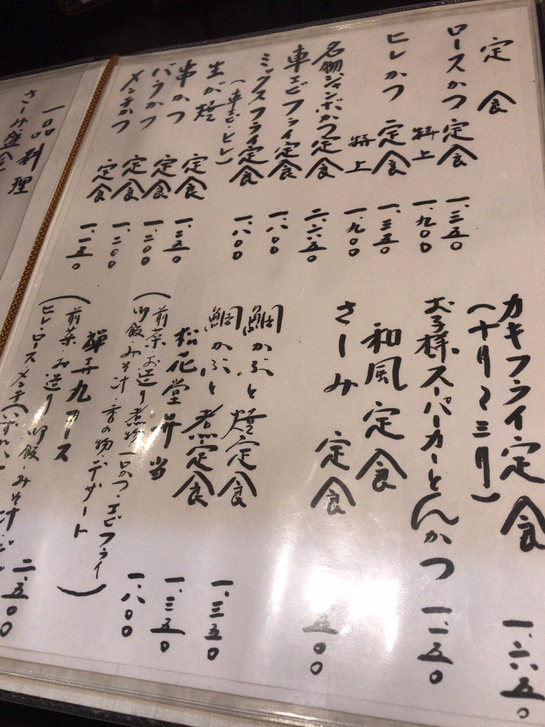 定食
ロースかつ定食 一、三五〇
特上 一、九〇〇
ヒレかつ 定食 一、三五〇
特上 一、九〇〇
名物ジャンボかつ定食 二、六五〇
車エビフライ定食 一、八〇〇
ミックスフライ定食 一、八〇〇
(車エビ・ヒレ)
生が㐂
串かつ 定食 一、三五〇
バラかつ 定食 一、二〇〇
メンチかつ 定食 一、一五〇
カキフライ定食 一、六五〇
(十月〜三月)
お子様スーパーカーとんかつ 一、一五〇
和風定食
さしみ 定食
鯛かぶと焼定食 一、三五〇
鯛かぶと煮定食 一、三五〇
松花堂弁当 一、八〇〇
(前菜・お造り・煮物・一口かつ・エビフライ
御飯・みそ汁・香の物・デザート)
コース 二、五〇〇
(前菜・お造り・御飯・みそ汁
ヒレ・ロース・メンチ
一品料理
さしみ盛合